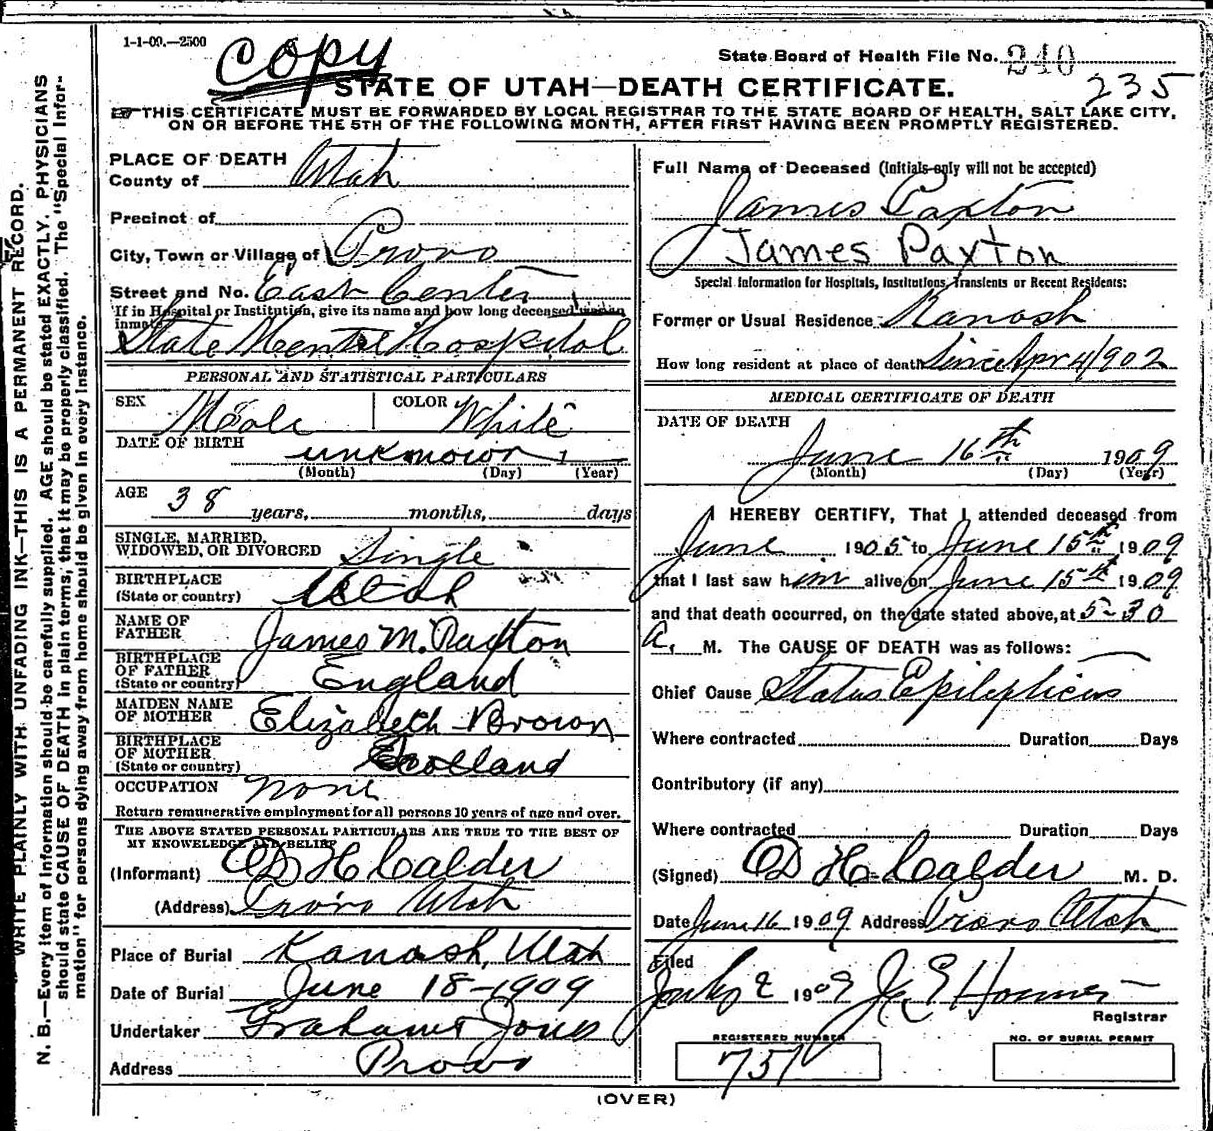 WRITE PLAINLY WITH UNFADING INK—THIS IS A PERMANENT RECORD.
N. B.—Every item of information should be carefully supplied. AGE should be stated EXACTLY. PHYSICIANS
should state CAUSE OF DEATH in plain terms, that it may be properly classified. The "Special Infor-
mation" for persons dying away from home should be given in every instance.
1-1-09.—2500
Copy
State Board of Health File No. 240
235
STATE OF UTAH—DEATH CERTIFICATE.
THIS CERTIFICATE MUST BE FORWARDED BY LOCAL REGISTRAR TO THE STATE BOARD OF HEALTH, SALT LAKE CITY,
ON OR BEFORE THE 5TH OF THE FOLLOWING MONTH, AFTER FIRST HAVING BEEN PROMPTLY REGISTERED.
PLACE OF DEATH
County of Utah
Precinct of
City, Town or Village of Provo
Street and No. East Center
If in Hospital or Institution, give its name and how long deceased was an
inmate
State Mental Hospital
PERSONAL AND STATISTICAL PARTICULARS
SEX Male COLOR White
DATE OF BIRTH unknown 1
(Month) (Day) (Year)
AGE 38 years, months, days
SINGLE, MARRIED,
WIDOWED, OR DIVORCED Single
BIRTHPLACE
(State or country) Utah
NAME OF
FATHER James M. Paxton
BIRTHPLACE
OF FATHER
(State or country) England
MAIDEN NAME
OF MOTHER Elizabeth Brown
BIRTHPLACE
OF MOTHER
(State or country) Scotland
OCCUPATION none
Return remunerative employment for all persons 10 years of age and over.
THE ABOVE STATED PERSONAL PARTICULARS ARE TRUE TO THE BEST OF
MY KNOWELEDGE AND BELIEF
(Informant) D H Calder
(Address) Provo Utah
Place of Burial Kanosh, Utah
Date of Burial June 18-1909
Undertaker Graham & Jones
Address Provo
Full Name of Deceased (Initials only will not be accepted)
James Paxton
James Paxton
Special Information for Hospitals, Institutions, Transients or Recent Residents:
Former or Usual Residence Kanosh
How long resident at place of death Since Apr 4/902
MEDICAL CERTIFICATE OF DEATH
DATE OF DEATH
June 16th 1909
(Month) (Day) (Year)
I HEREBY CERTIFY, That I attended deceased from
June 1905 to June 15th 1909
that I last saw him alive on June 15th 1909
and that death occurred, on the date stated above, at 5-30
A. M. The CAUSE OF DEATH was as follows:
Chief Cause Status Epilepticus
Where contracted Duration Days
Contributory (if any)
Where contracted Duration Days
(Signed) D H Calder M. D.
Date June 16 1909 Address Provo Utah
Filed
1909
Registrar
REGISTERED NUMBER NO. OF BURIAL PERMIT
751
(OVER)